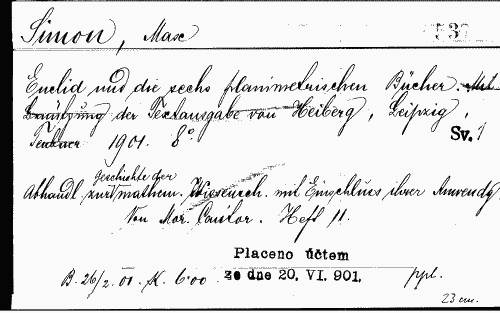 Simon, Max
537
Euclid und die sechs planimetrischen Bücher. Mit
Benützung der Textausgabe von Heiberg, Leipzig,
Teubner 1901. 8°
Sv. 1
Geschichte der
Abhandl. zur mathem. Wissensch. mit Einschluss ihrer Anwendg
Von Mor. Cantor. Heft 11.
Placeno účtem
ze dne 20. VI. 901.
B. 26/2 01 K. 6·00
ppl.
23 cm.